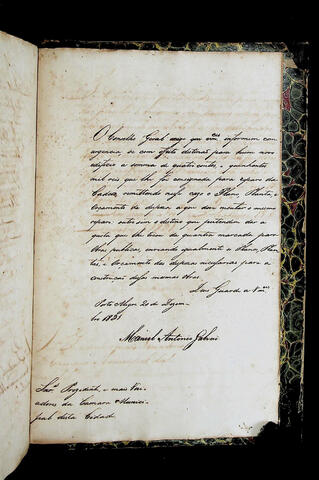 O Conselho Geral exige que Vmces informem com
urgencia, se com effeito destinão para hum novo
edificio a somma de quatro contos, e quinhentos
mil reis que lhe foi consignada para reparo da
Cadêa, remettendo logo o Plano, Planta, e
Orçamento da despeza
e outro sim o destino que pretendem dar a
quota que lhe tocou da quantia marcada para
Obras publicas, enviando igualmente o Plano, Plan-
tas, e Orçamento das despezas necessarias para a
construcção dessas mesmas obras.
Deos Guarde a Vmces
Porto Alegre 20 de Dezem-
bro 1831
Manoel Antonio Galvão
Snrs. Presidente, e mais Vere-
adores da Camara Munici-
pal desta Cidade